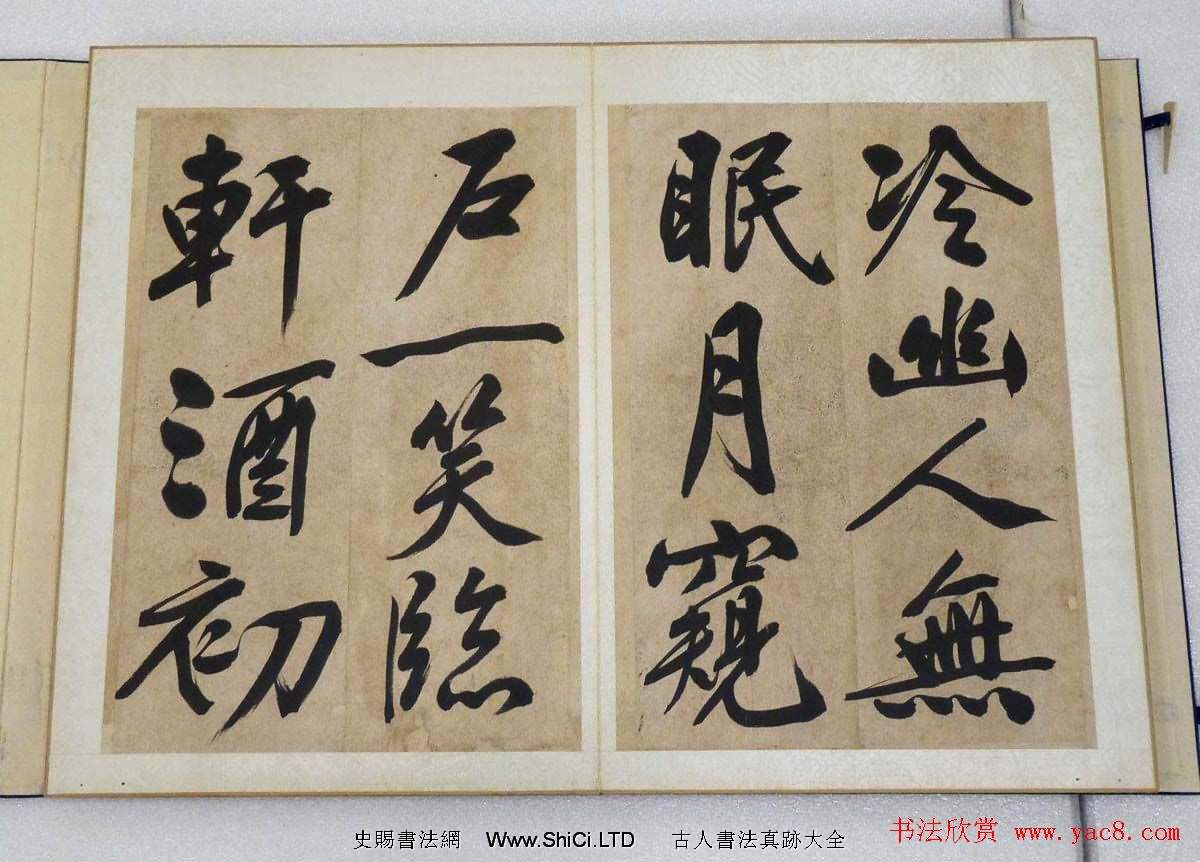 冷幽人無
眠月窺
戶一笑臨
軒酒初
史賜書法網 Www.ShiCi.LTD 古人書法真跡大全
书法欣赏 www.yac8.com